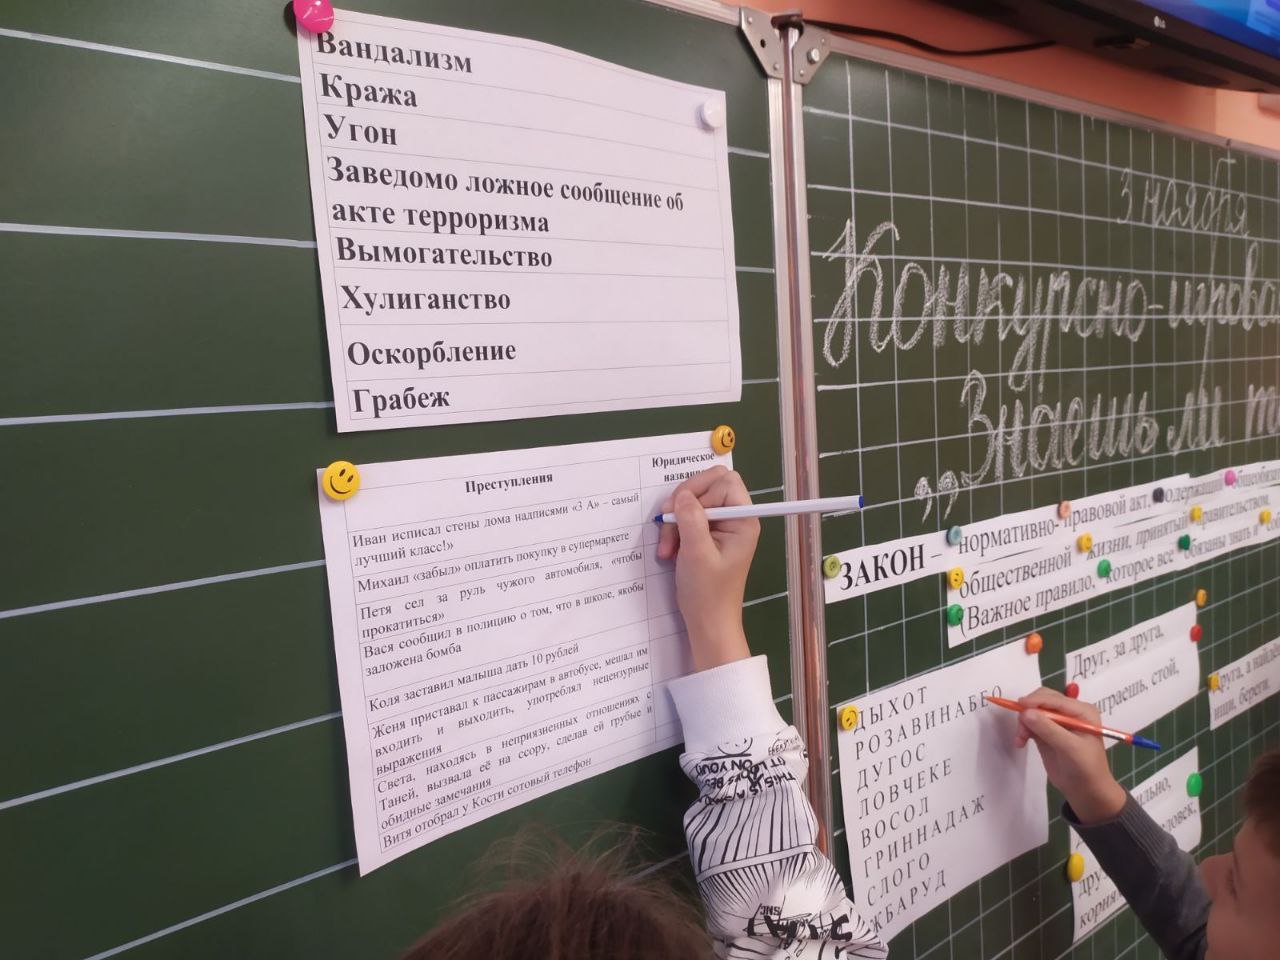 Вандализм
Кража
Угон
Заведомо ложное сообщение об
акте терроризма
Вымогательство
Хулиганство
Оскорбление
Грабеж
Преступления
Юридическое
Иван исписал стены дома надписями «3 А» – самый
лучший класс!»
Михаил «забыл» оплатить покупку в супермаркете
Петя сел за руль чужого автомобиля, «чтобы
прокатиться»
Вася сообщил в полицию о том, что в школе, якобы
заложена бомба
Коля заставил малыша дать 10 рублей
Женя приставал к пассажирам в автобусе, мешал им
входить и выходить, употреблял нецензурные
выражения
Света, находясь в неприязненных отношениях с
Таней, вызвала её на ссору, сделав ей грубые и
обидные замечания
Витя отобрал у Кости сотовый телефон
LG
3 ноября
Конкурсно-игрова
„Знаешь ли т
ЗАКОН – нормативно- правовой акт, содержащий общеобяза
общественной жизни, принятый правительством.
(Важное правило, которое все обязаны знать и со
ДЫХОТ
РОЗАВИНАБЕО
ДУГОС
ЛОВЧЕКЕ
ВОСОЛ
ГРИННАДАЖ
СЛОГО
ЖБАРУД
Друг, за друга,
играешь, стой,
друга, а найдё
ищи, береги.
ильно,
ловек,
дру
корня